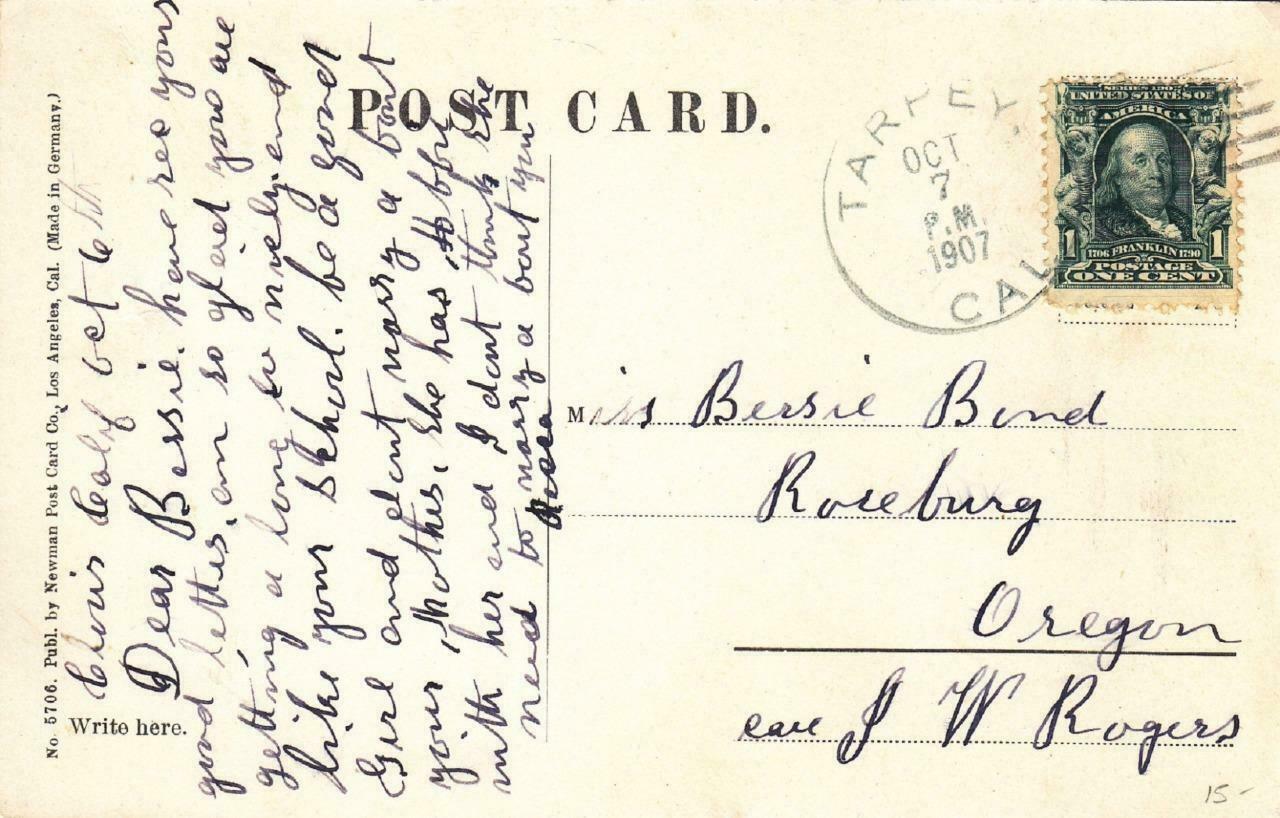 No 5706. Publ. by Newman Post Card Co., Los Angeles, Cal. (Made in Germany.)
POST CARD.
Write here.
calif oct 6th
Dear Bessie. have rec your
good letter, am so glad you are
getting a long so nicely, and
like your School. be a good
Girl and dont worry a bout
your Mother, She has
with her and I dont think she
need to worry a bout you
TARPEY,
OCT
7
P.M.
1907
CAL
SERIES 1902
UNITED STATES OF
AMERICA
1 1
1706 FRANKLIN 1790
POSTAGE
ONE CENT
Miss Bessie Bond
Roseburg
Oregon
care J W Rogers
15-